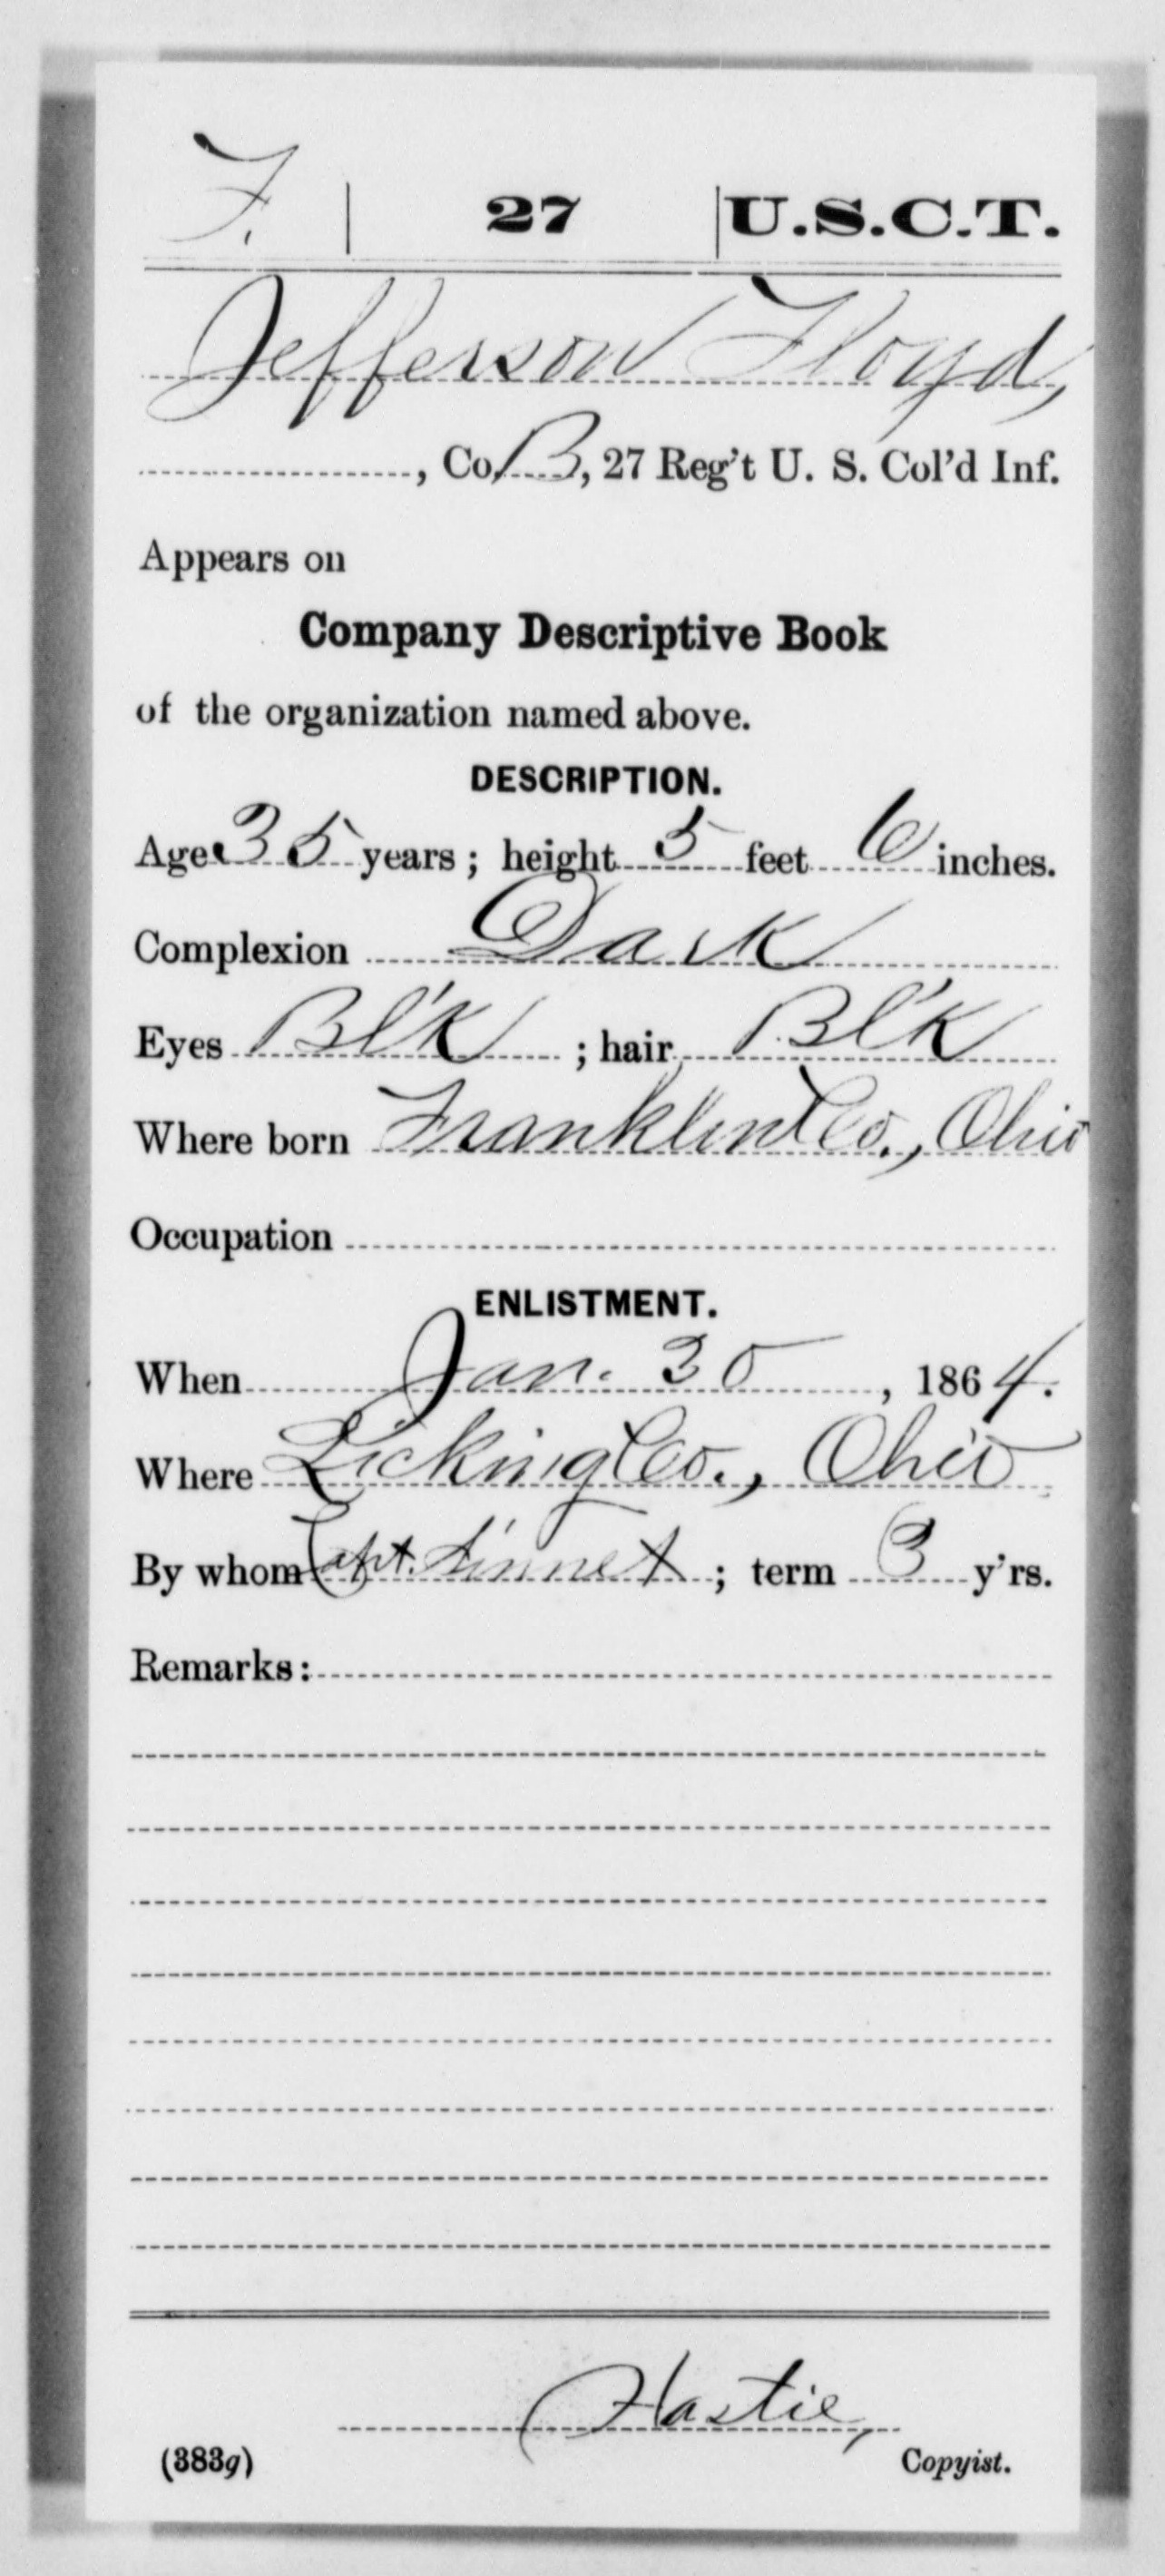 F. | 27 | U.S.C.T.
Jefferson Floyd,
, Co. B, 27 Reg't U. S. Col'd Inf.
Appears on
Company Descriptive Book
of the organization named above.
DESCRIPTION.
Age 35 years; height 5 feet 6 inches.
Complexion Dark
Eyes Bl'k ; hair Bl'k
Where born Franklin Co., Ohio
Occupation
ENLISTMENT.
When Jan. 30, 1864.
Where Licking Co., Ohio
By whom Capt. ; term 3 y'rs.
Remarks:
Hastie,
(383g) Copyist.